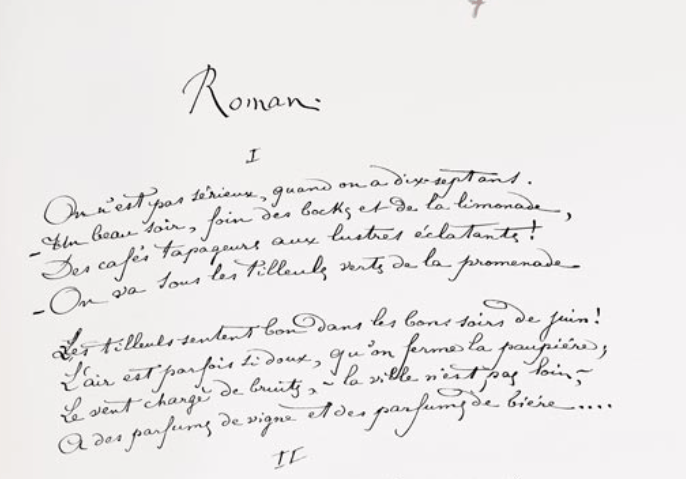 Roman.
I
On n'est pas sérieux, quand on a dix-sept ans.
- Un beau soir, foin des bocks et de la limonade,
Des cafés tapageurs aux lustres éclatants !
- On va sous les tilleuls verts de la promenade
Les tilleuls sentent bon dans les bons soirs de juin !
L'air est parfois si doux, qu'on ferme la paupière ;
Le vent chargé de bruits, - la ville n'est pas loin, -
A des parfums de vigne et des parfums de bière ....
II